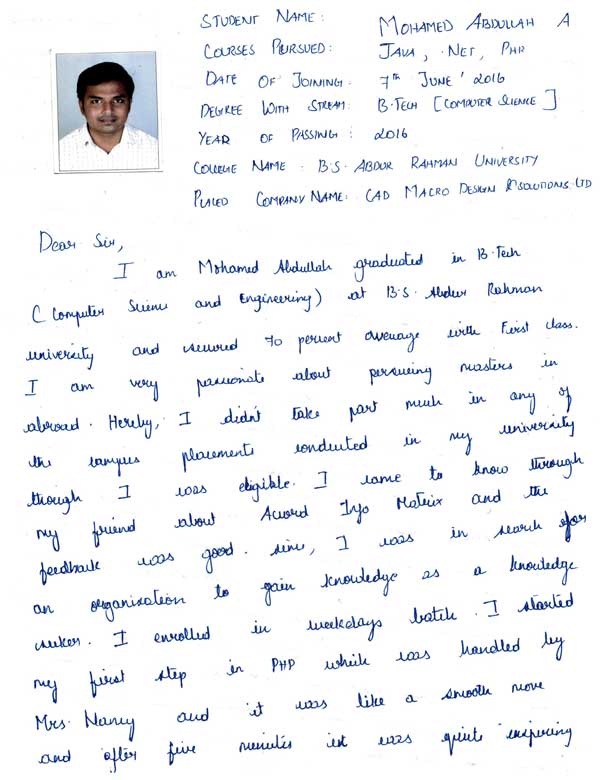 STUDENT NAME: MOHAMED ABDULLAH A
COURSES PURSUED: JAVA, .NET, PHP
DATE OF JOINING: 7th JUNE' 2016
DEGREE WITH STREAM: B.TECH [COMPUTER SCIENCE]
YEAR OF PASSING: 2016
COLLEGE NAME: B.S. ABDUR RAHMAN UNIVERSITY
PLACED COMPANY NAME: CAD MACRO DESIGN & SOLUTIONS LTD
Dear Sir,
I am Mohamed Abdullah graduated in B.Tech
(Computer Science and Engineering) at B.S. Abdur Rahman
university and secured 70 percent average with First class.
I am very passionate about persueing masters in
abroad. Hereby, I didn't take part much in any of
the campus placements conducted in my university
though I was eligible. I came to know through
my friend about Accord Info Matrix and the
feedback was good. since, I was in search for
an organisation to gain knowledge as a knowledge
seeker. I enrolled in weekdays batch. I started
my first step in PHP which was handled by
Mrs. Nancy and it was like a smooth move
and after five minutes it was quite inspiring